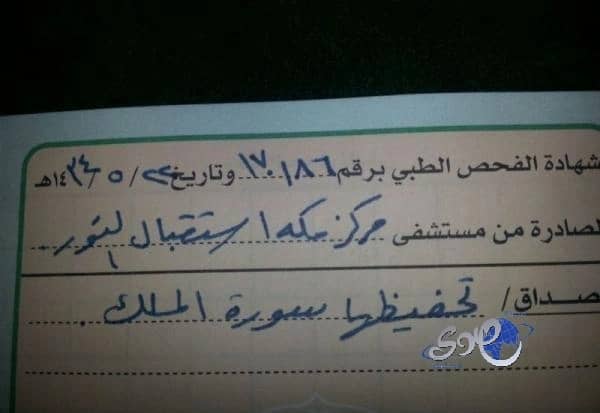 شهادة الفحص الطبي برقم ١٧٠١٨٦ وتاريخ ٢٢/ ٥ /١٤٣٤هـ
الصادرة من مستشفى مركز مكه استقبال النور
الصداق/ تحفيظها سورة الملك.
صدى